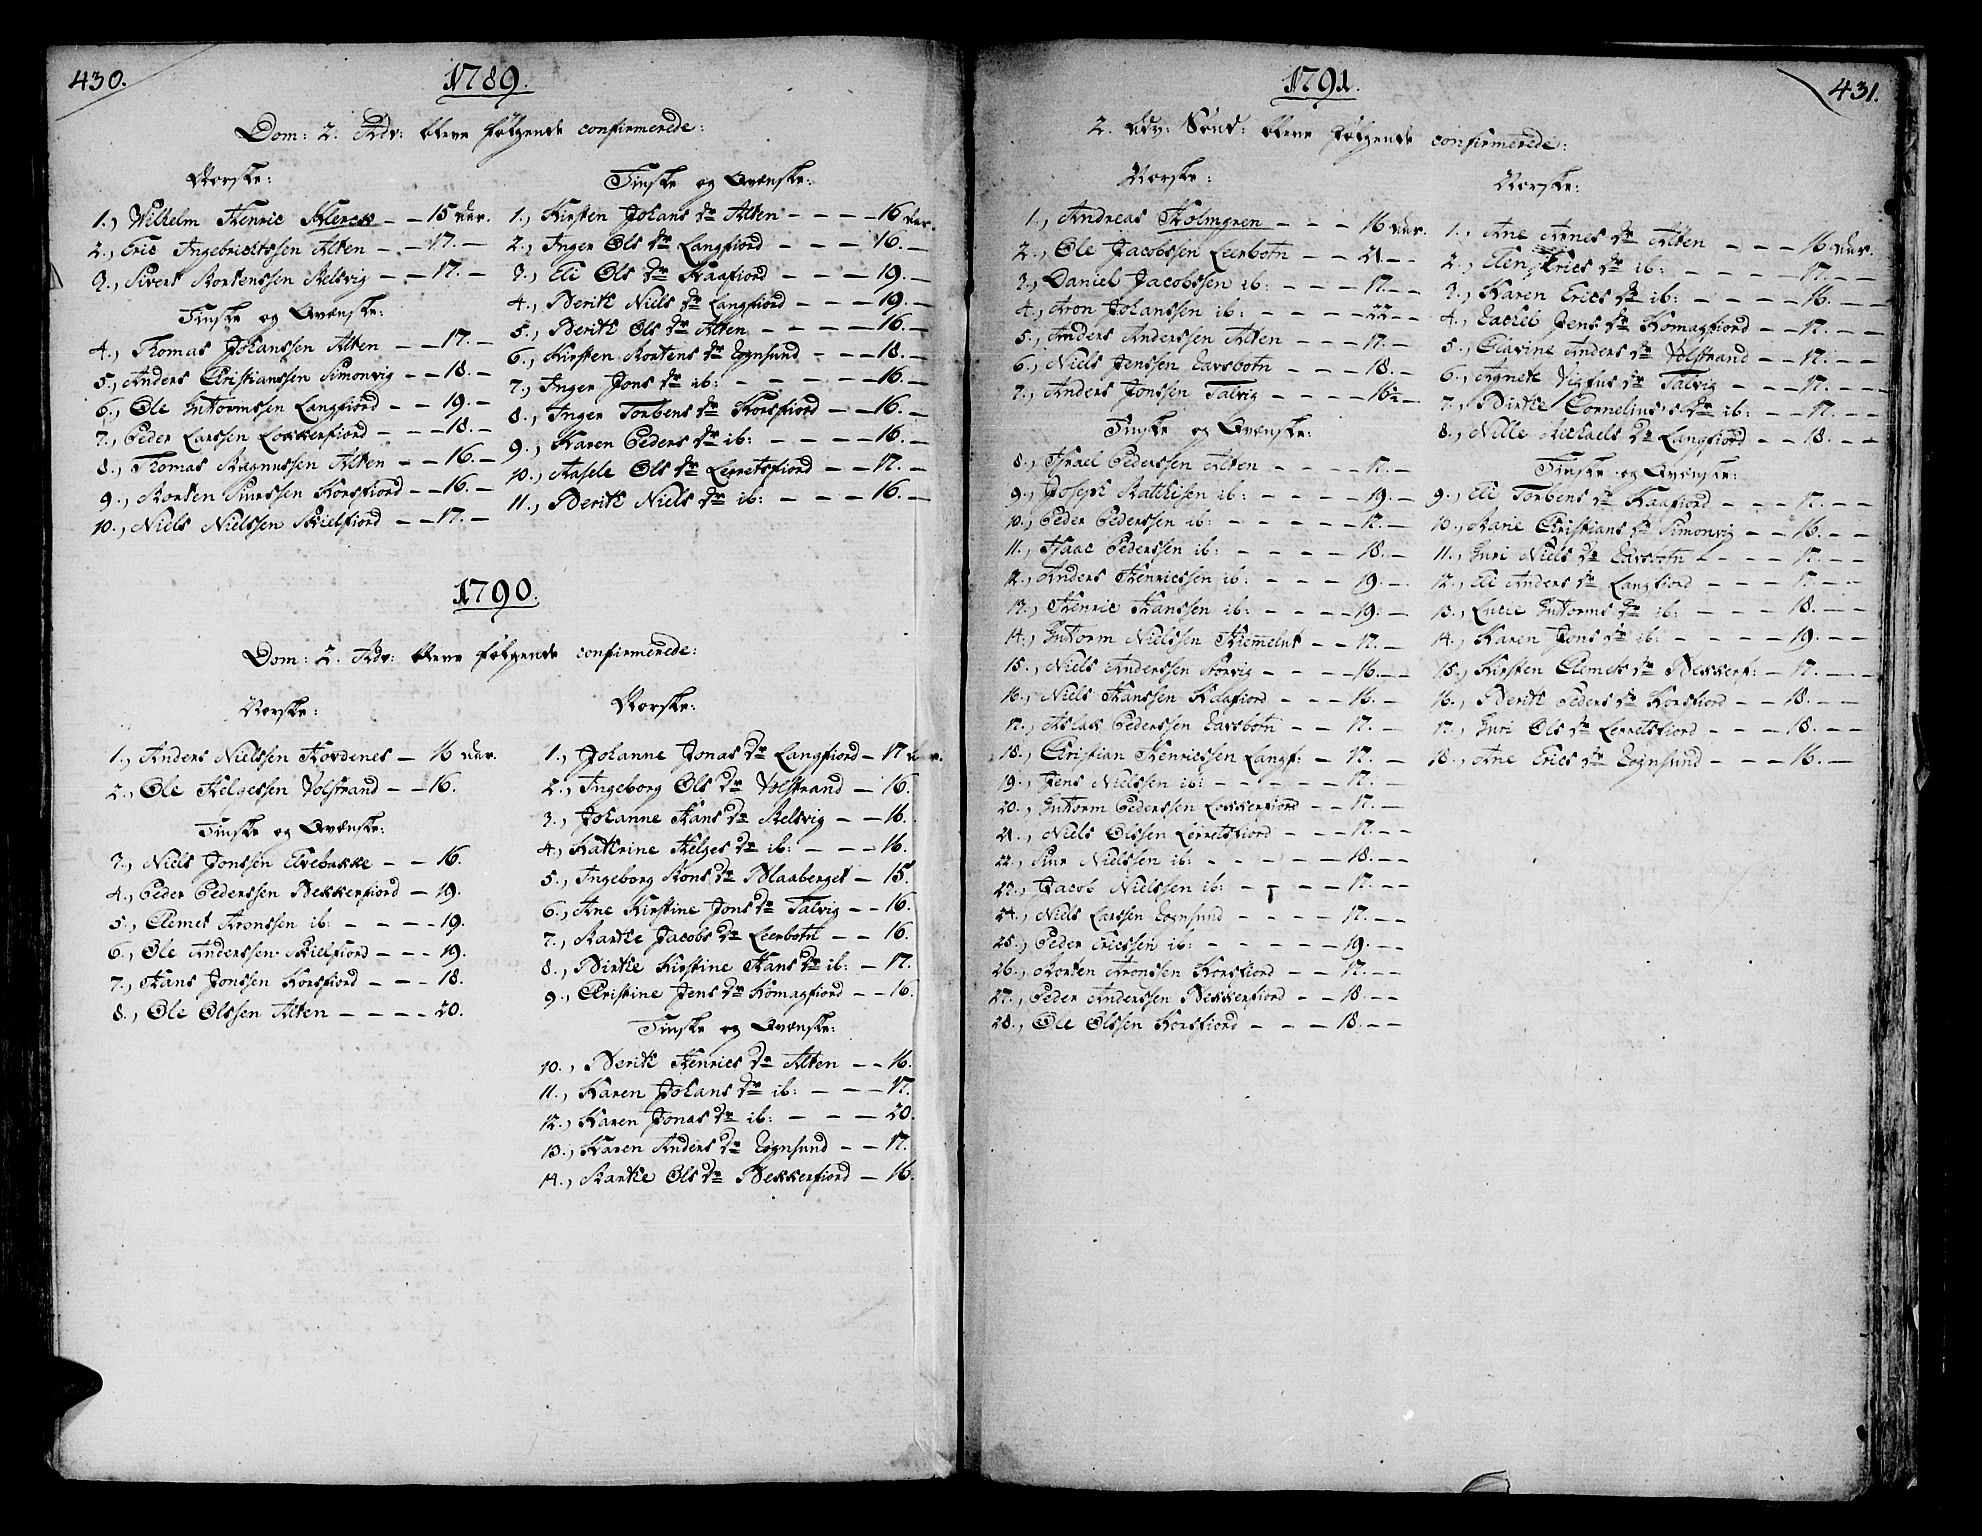 430.
1789.
Dom: 2. Adv: bleve følgende confirmerede:
Norske:
1., Wilhelm Henric Klerck — — 15 aar.
2., Eric Ingebrichtssen Alten — — 17. —
3., Sivert Mortenssen Melsvig — — 17. —
Finske og Qvænske:
4., Thomas Johanssen Alten — — 17. —
5., Anders Christianssen Simonvig — — 18. —
6., Ole Guttormssen Langfiord — — 19. —
7., Peder Larssen Lokkerfiord — — 18. —
8., Thomas Magnussen Alten — — 16. —
9., Morten Siurssen Korsfiord — — 16. —
10., Niels Nielssen Skielfiord — — 17. —
Finske og Qvænske:
1., Kirsten Johans dr Alten — — — — 16 aar.
2., Inger Ols dr Langfiord — — — — 16. —
3., Eli Ols dr Kaafiord — — — — 19. —
4., Berith Niels dr Langfiord — — — 19. —
5., Berith Ols dr Alten — — — — 16. —
6., Kirsten Mortens dr Rognsund — — — 18. —
7., Inger Jons dr ib: — — — — — 16. —
8., Inger Torbens dr Korsfiord — — 16. —
9., Karen Peders dr ib: — — — — 16. —
10., Aasele Ols dr Lerretsfiord — — 17. —
11., Berith Niels dr ib: — — — — 16. —
1790.
Dom: 2. Adv: bleve følgende confirmerede:
Norske:
1., Anders Nielssen Hovdenes — 16 aar.
2., Ole Helgessen Volstrand — — 16.
Finske og Qvænske:
3., Niels Jonssen Elvebakke — — 16.
4., Peder Pederssen Bekkerfiord — 19.
5., Clemet Aronssen ib: — — — — 19.
6., Ole Anderssen Skielfiord — — — 19.
7., Hans Jonssen Korsfiord — — — 18.
8., Ole Olssen Alten — — — — 20.
Norske:
1., Johanne Jonas dr Langfiord — 17 aar.
2., Ingeborg Ols dr Volstrand — 16.
3., Johanne Hans dr Melsvig — — 16.
4., Kathrine Helges dr ib: — — — 16.
5., Ingeborg Mons dr Blaaberget — 15.
6., Ane Kirstine Jons dr Talvig — — 16.
7., Marthe Jacobs dr Leerbotn — — 16.
8., Birthe Kirstine Hans dr ib: — 17.
9., Christine Jens dr Komagfiord — — 16.
Finske og Qvænske:
10., Berith Henrics dr Alten — — 16.
11., Karen Johans dr ib: — — — 17.
12., Karen Jonas dr ib: — — — 20.
13., Karen Anders dr Rognsund — — 17.
14., Marthe Ols dr Bekkerfiord — 16.
1791.
431.
2. Adv: Sønd: bleve følgende confirmerede:
Norske:
1., Andreas Holmgren — — — 16 aar.
2., Ole Jacobssen Leerbotn — — 21. —
3., Daniel Jacobssen ib: — — — 17. —
4., Aron Johanssen ib: — — — — 22 —
5., Anders Anderssen Alten — — — 17. —
6., Niels Jenssen Ravsbotn — — — 18. —
7., Anders Jonssen Talvig — — — — 16½ —
Finske og Qvænske:
8., Israel Pederssen Alten — — — — 17. —
9., Joseph Mathisen ib: — — — — 19. —
10., Peder Pederssen ib: — — — — — 17. —
11., Isaac Pederssen ib: — — — — 18. —
12., Anders Henricssen ib: — — — — 19. —
13., Henric Hanssen ib: — — — — 19. —
14., Guttorm Nielssen Hiemelnt — — 17. —
15., Niels Anderssen Storvig — — — 16. —
16., Niels Hanssen Kaafiord — — — 16. —
17., Aslak Pederssen Ravsbotn — — 17. —
18., Christian Henricssen Langf: — 17. — —
19., Jens Nielssen ib: — — — — — — 17. — —
20., Guttorm Pederssen Lokkerfiord — — 17. — —
21., Niels Olssen Lerretsfiord — — — 17. — —
22., Siur Nielssen ib: — — — — — 18. — —
23., Jacob Nielssen ib: — — — — 17. — —
24., Niels Larssen Rognsund — — — — 17. — —
25., Peder Ericssen ib: — — — — — 19. — —
26., Morten Aronssen Korsfiord — — 17. — —
27., Peder Anderssen Bekkerfiord — — 18. — —
28., Ole Olssen Korsfiord — — — — 18. — —
Norske:
1., Ane Arnes dr Alten — — — 16 aar.
2., Elen Erics dr ib: — — — — 17. — —
3., Karen Erics dr ib: — — — — 16. — —
4., Rachel Jens dr Komagfiord — — 17. — —
5., Olavine Anders dr Volstrand — — 17. — —
6., Agnete Vigfus dr Talvig — — — 17. — —
7., Birthe Cornelius's dr ib: — — 17. — —
8., Nille Michaels dr Langfiord — — 18. — —
Finske og Qvænske:
9., Eli Torbens dr Kaafiord — — — 17. — —
10., Marie Christians dr Simonvig — — 16. — —
11., Guri Niels dr Ravsbotn — — — — 17. — —
12., Eli Anders dr Langfiord — — — — 17. — —
13., Lucie Guttorms dr ib: — — — — 18. — —
14., Karen Jons dr ib: — — — — — 19. — —
15., Kirsten Clemets dr Bekkerf: — 17. — —
16., Berith Peders dr Korsfiord — — 18. — —
17., Guri Ols dr Lerretsfiord — — — 18. — —
18., Ane Erics dr Rognsund — — — — 16. — —